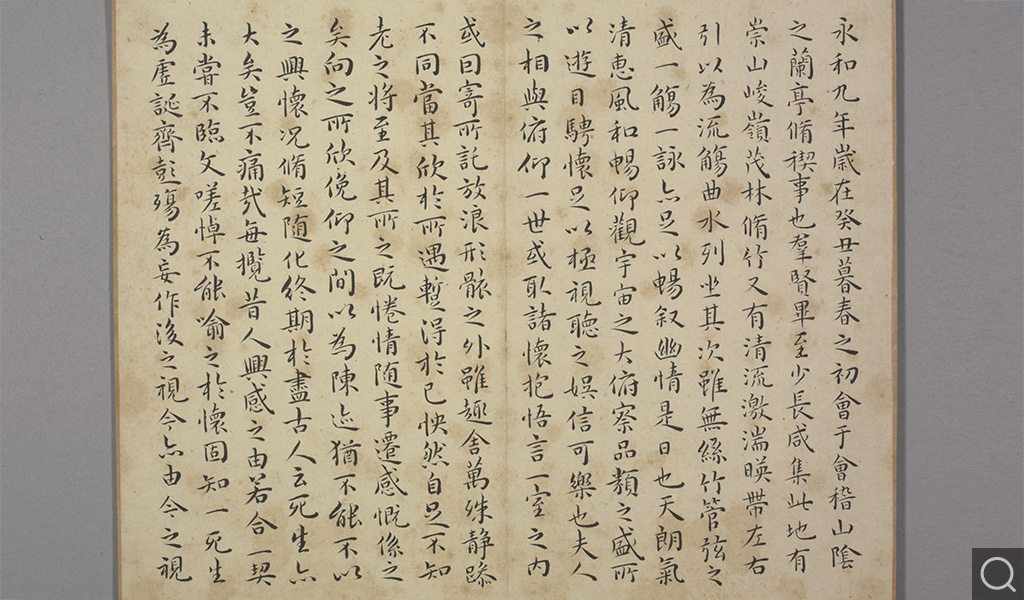 永和九年歲在癸丑暮春之初會于會稽山陰
之蘭亭脩稧事也羣賢畢至少長咸集此地有
崇山峻嶺茂林脩竹又有清流激湍暎帶左右
引以為流觴曲水列坐其次雖無絲竹管弦之
盛一觴一詠亦足以暢叙幽情是日也天朗氣
清惠風和暢仰觀宇宙之大俯察品類之盛所
以遊目騁懷足以極視聽之娛信可樂也夫人
之相與俯仰一世或取諸懷抱悟言一室之內
或曰寄所託放浪形骸之外雖趣舍萬殊靜躁
不同當其欣於所遇蹔得於己怏然自足不知
老之將至及其所之既惓情隨事遷感慨係之
矣向之所欣俛仰之間以為陳迹猶不能不以
之興懷况脩短隨化終期於盡古人云死生亦
大矣豈不痛哉每攬昔人興感之由若合一契
未嘗不臨文嗟悼不能喻之於懷固知一死生
為虛誕齊彭殤為妄作後之視今亦由今之視